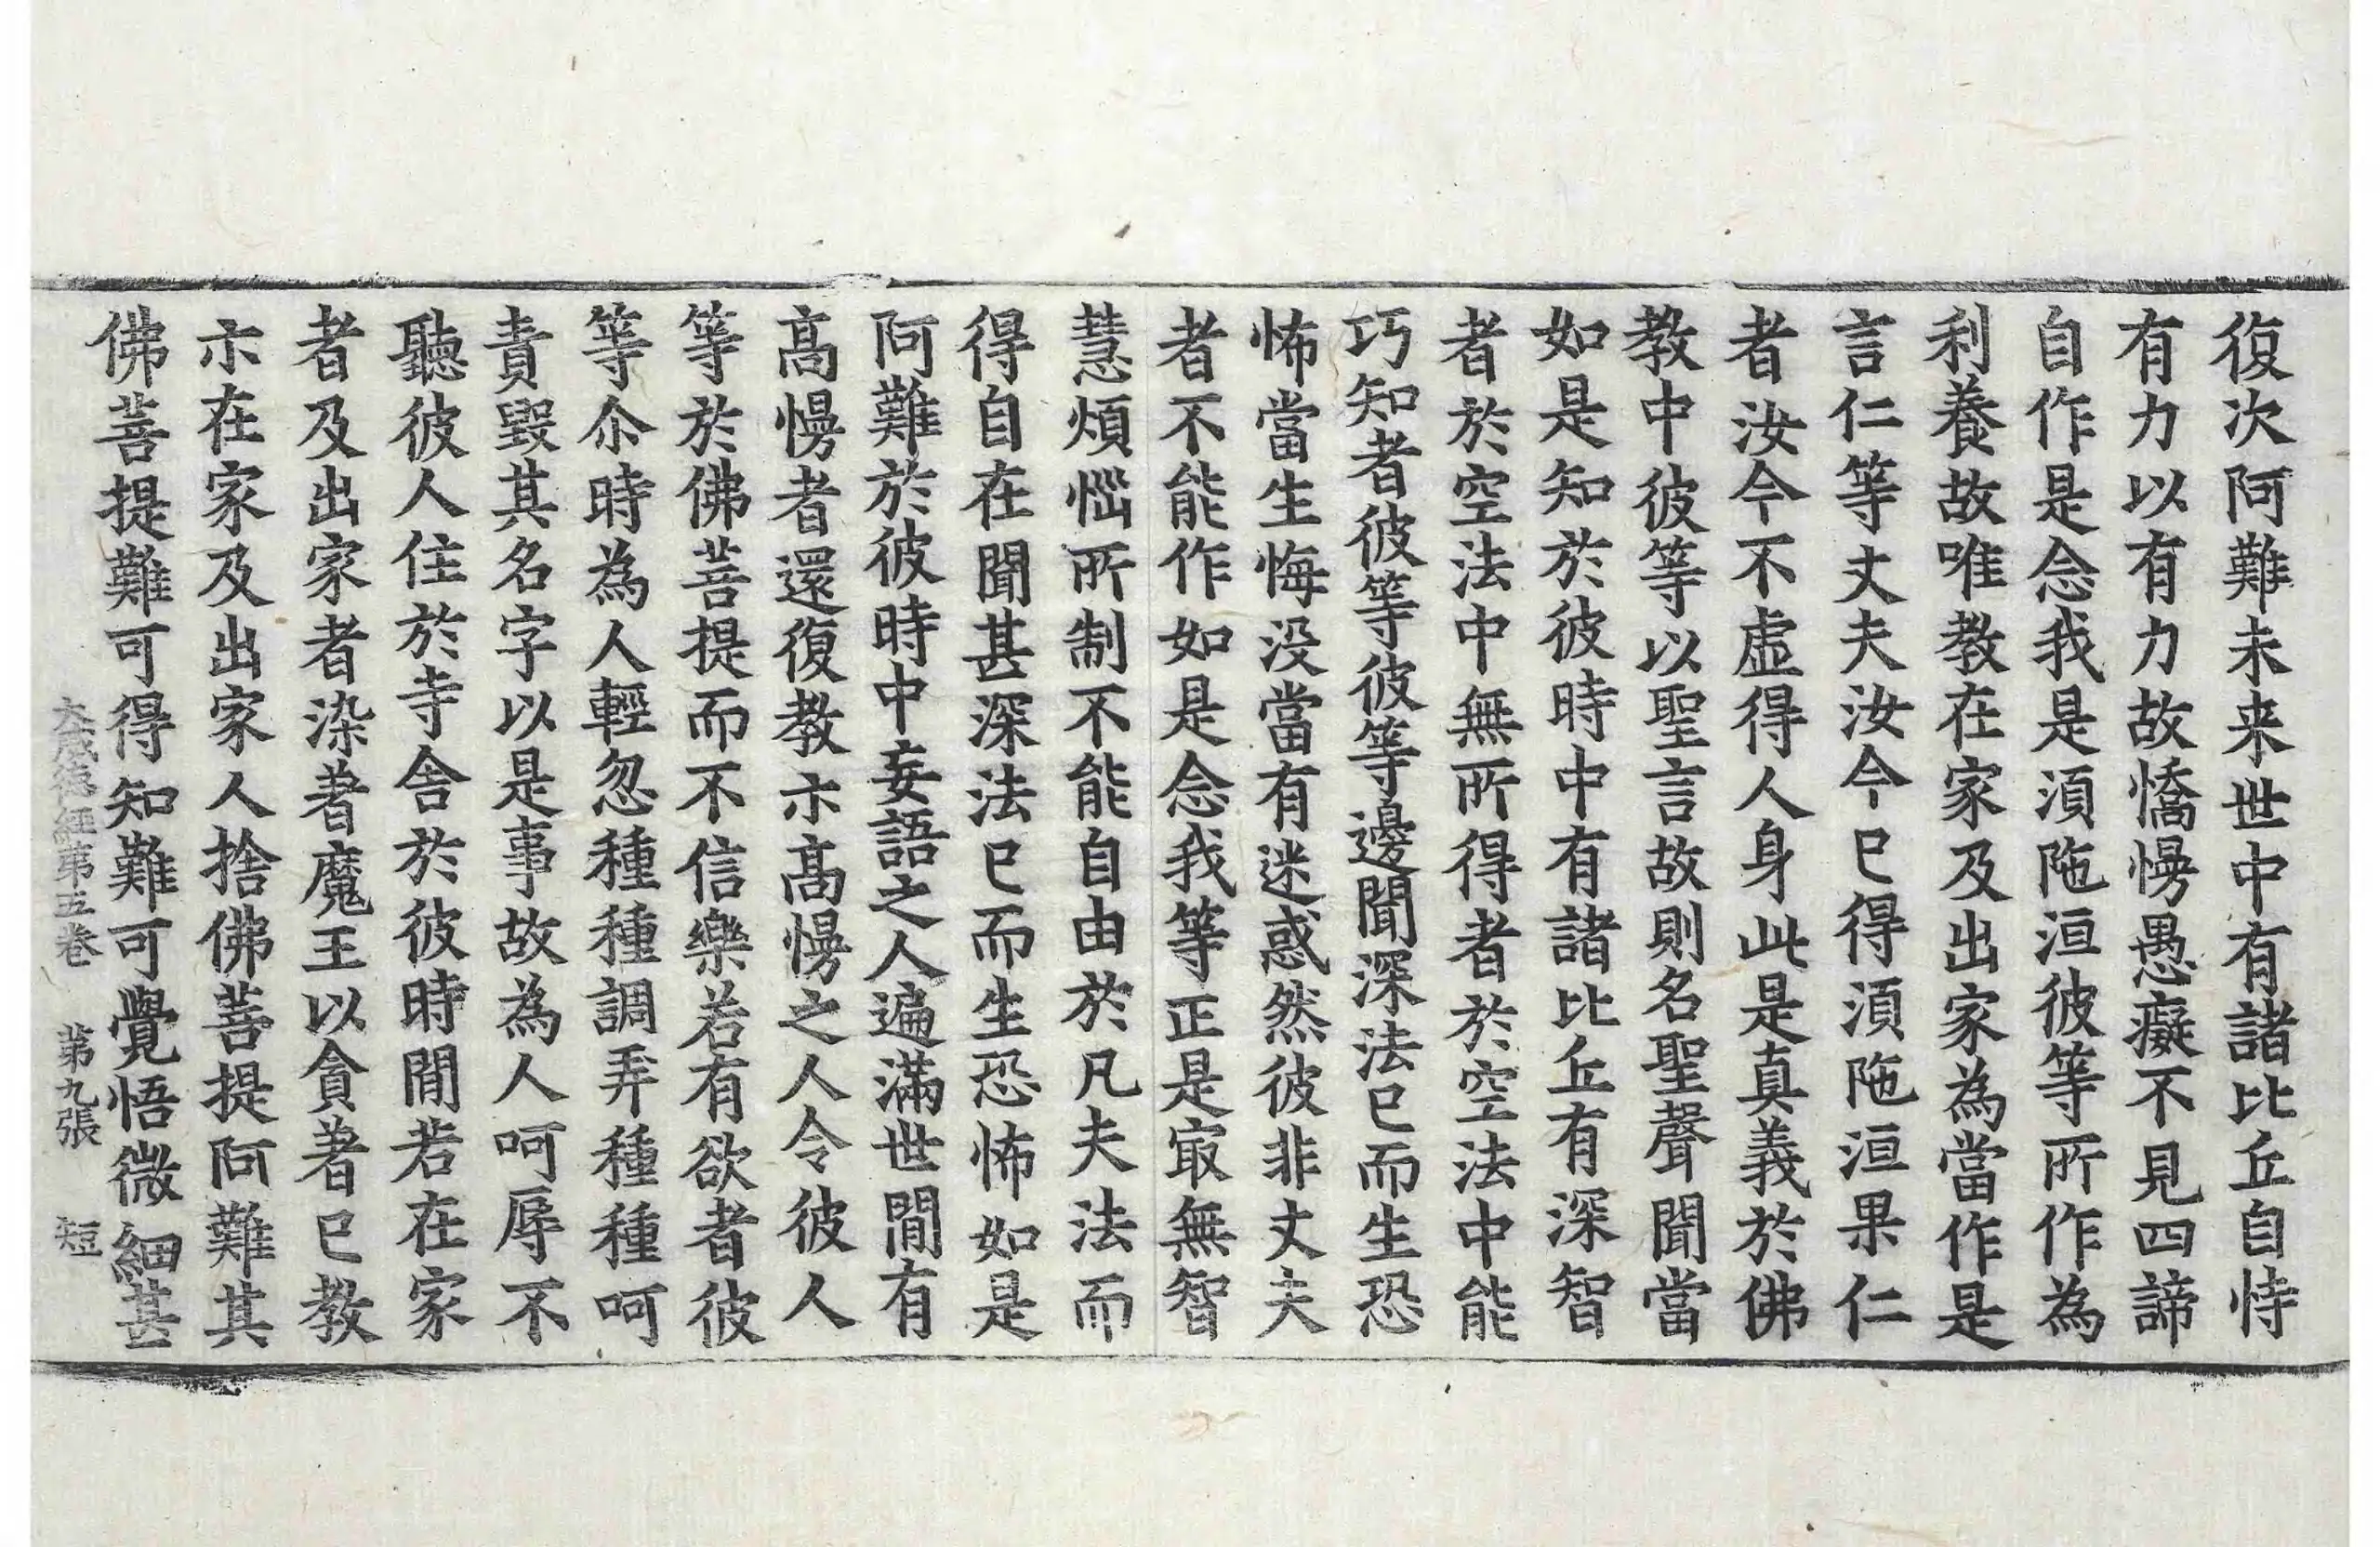 復次阿難未来世中有諸比丘自恃
有力以有力故憍慢愚癡不見四諦
自作是念我是湏陁洹彼等所作為
利養故唯教在家及出家為當作是
言仁等丈夫汝今已得湏陁洹果仁
者汝今不虛得人身此是真義於佛
教中彼等以聖言故則名聖聲聞當
如是知於彼時中有諸比丘有深智
者於空法中無所得者於空法中能
巧知者彼等彼等邊聞深法已而生恐
怖當生悔没當有迷惑然彼非丈夫
者不能作如是念我等正是冣無智
慧煩惱所制不能自由於凡夫法而
得自在聞甚深法已而生恐怖如是
阿難於彼時中妄語之人遍滿世間有
髙慢者還復教亦髙慢之人令彼人
等於佛菩提而不信樂若有欲者彼
等尒時為人輕忽種種調弄種種呵
責毀其名字以是事故為人呵辱不
聽彼人住於寺舍於彼時間若在家
者及出家者染著魔王以貪著已教
亦在家及出家人捨佛菩提阿難其
佛菩提難可得知難可覺悟微細甚
大威德經第五卷 第九張 短